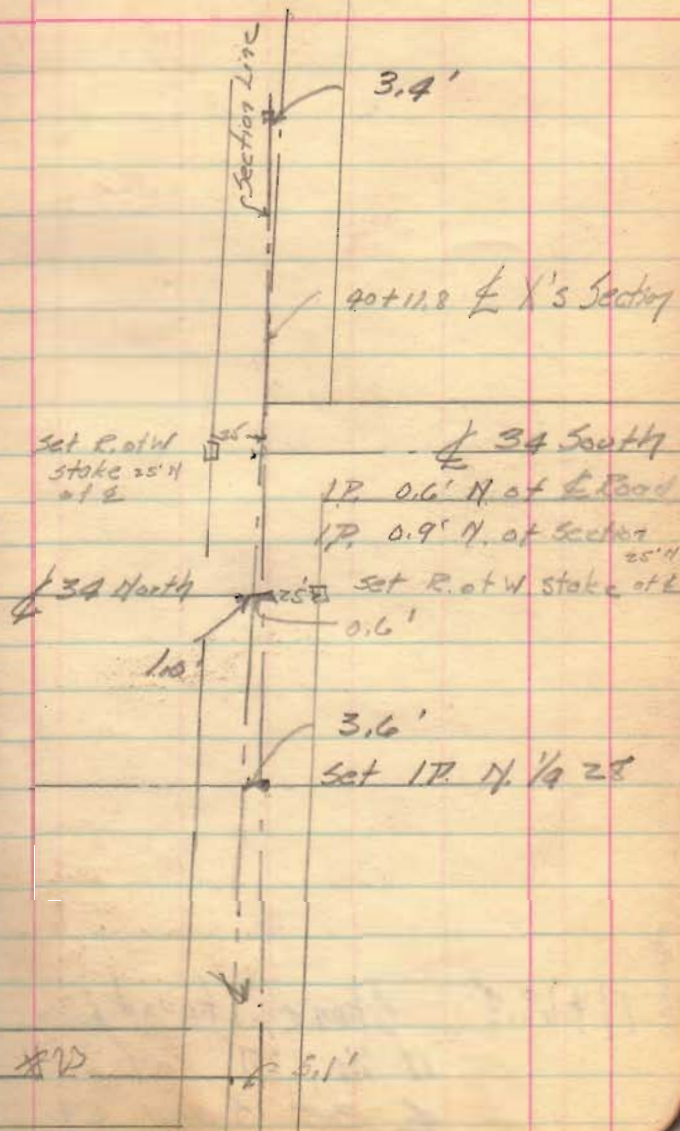 Section Line
3.4'
40+11.8 ℄ X's Section
25
℄ 34 South
set R. of W
stake 25' N
of ℄
I.P. 0.6' N. of ℄ Road
I.P. 0.9' N. of Section
25' N
℄ 34 North
25'
set R. of W stake of ℄
0.6'
1.0'
3.6'
set I.P. N. 1/4 28
℄
5.1'